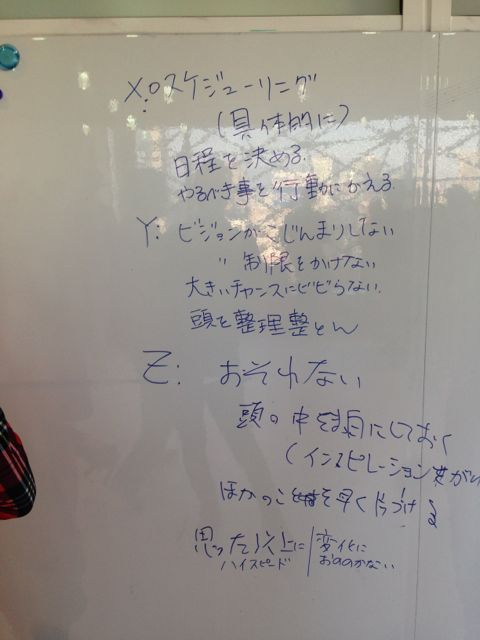 X:スケジューリング
(具体的に)
日程を決める.
やるべき事を行動にかえる.
Y: ビジョンがこじんまりしない
〃 制限をかけない
大きいチャンスにビビらない.
頭を整理整とん
Z: おそれない
頭の中を
にしておく
(インスピレーション
ほかのこと
を早く片づける
思った以上に
ハイスピード
変化に
おののかない